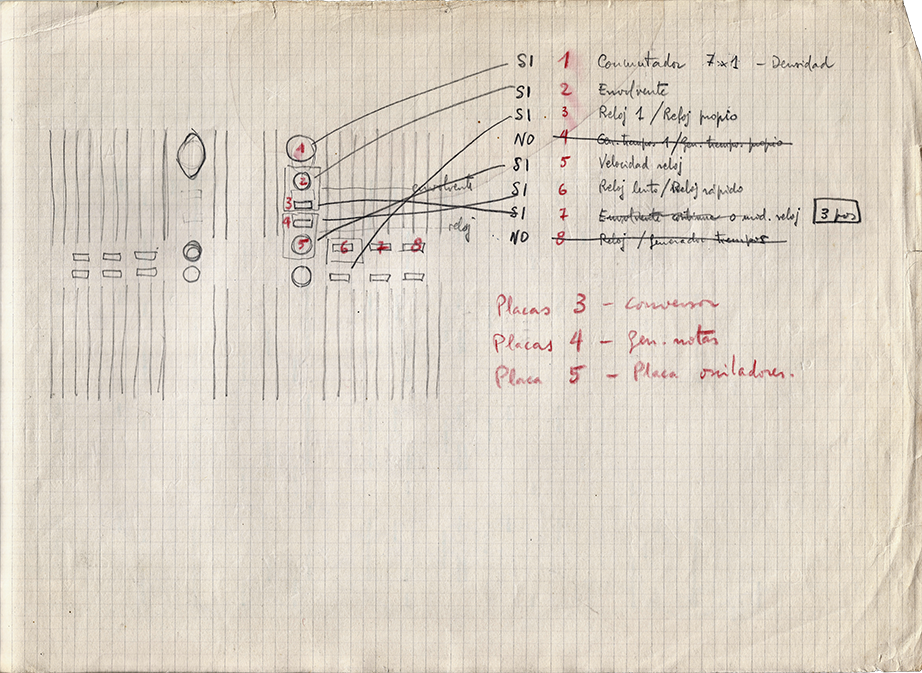 SI 1 Conmutador 7x1 - Densidad
SI 2 Envolvente
SI 3 Reloj 1 / Reloj propio
NO 4 Gen. tiempos 1 / Gen. tiempos propio
SI 5 Velocidad reloj
SI 6 Reloj lento / Reloj rápido
SI 7 Envolvente continua o mod. reloj 3 pos
NO 8 Reloj / Generador tiempos
1
2
envolvente
3
4
reloj
5
6 7 8
Placas 3 - conversor
Placas 4 - Gen. notas
Placa 5 - Placa osciladores.